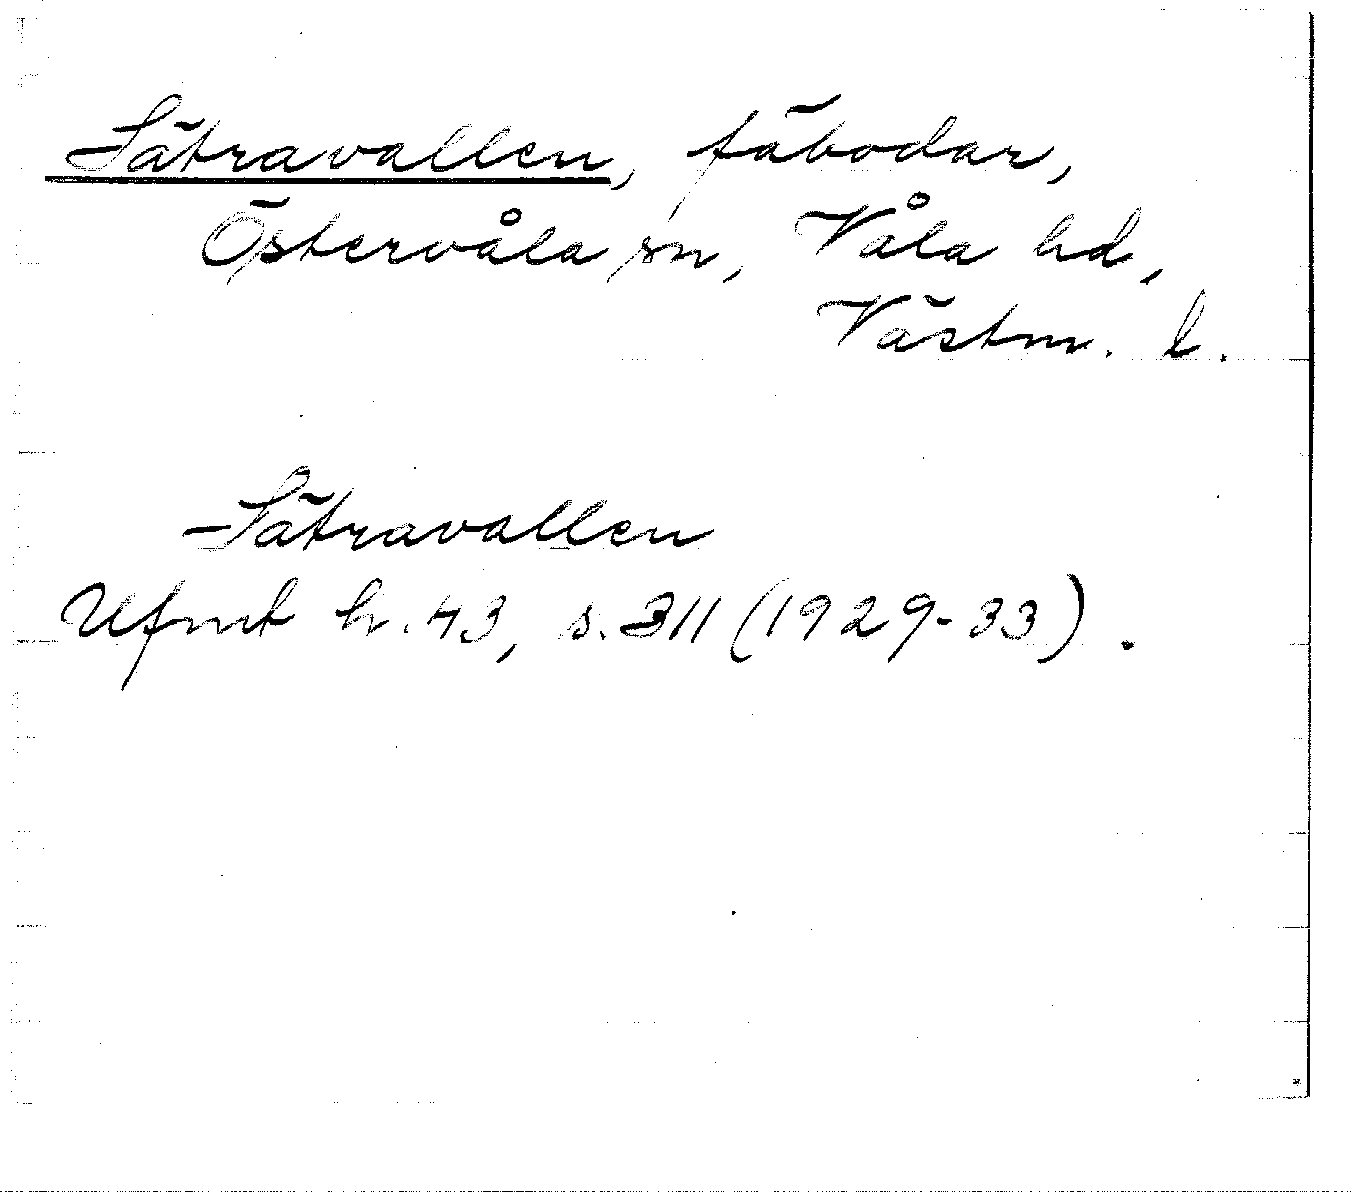 Sätravallen, fäbodar,
Östervåla sn, Våla hd,
Västm. l.
Sätravallen
Ufmt h. 43, s. 311 (1929-33).